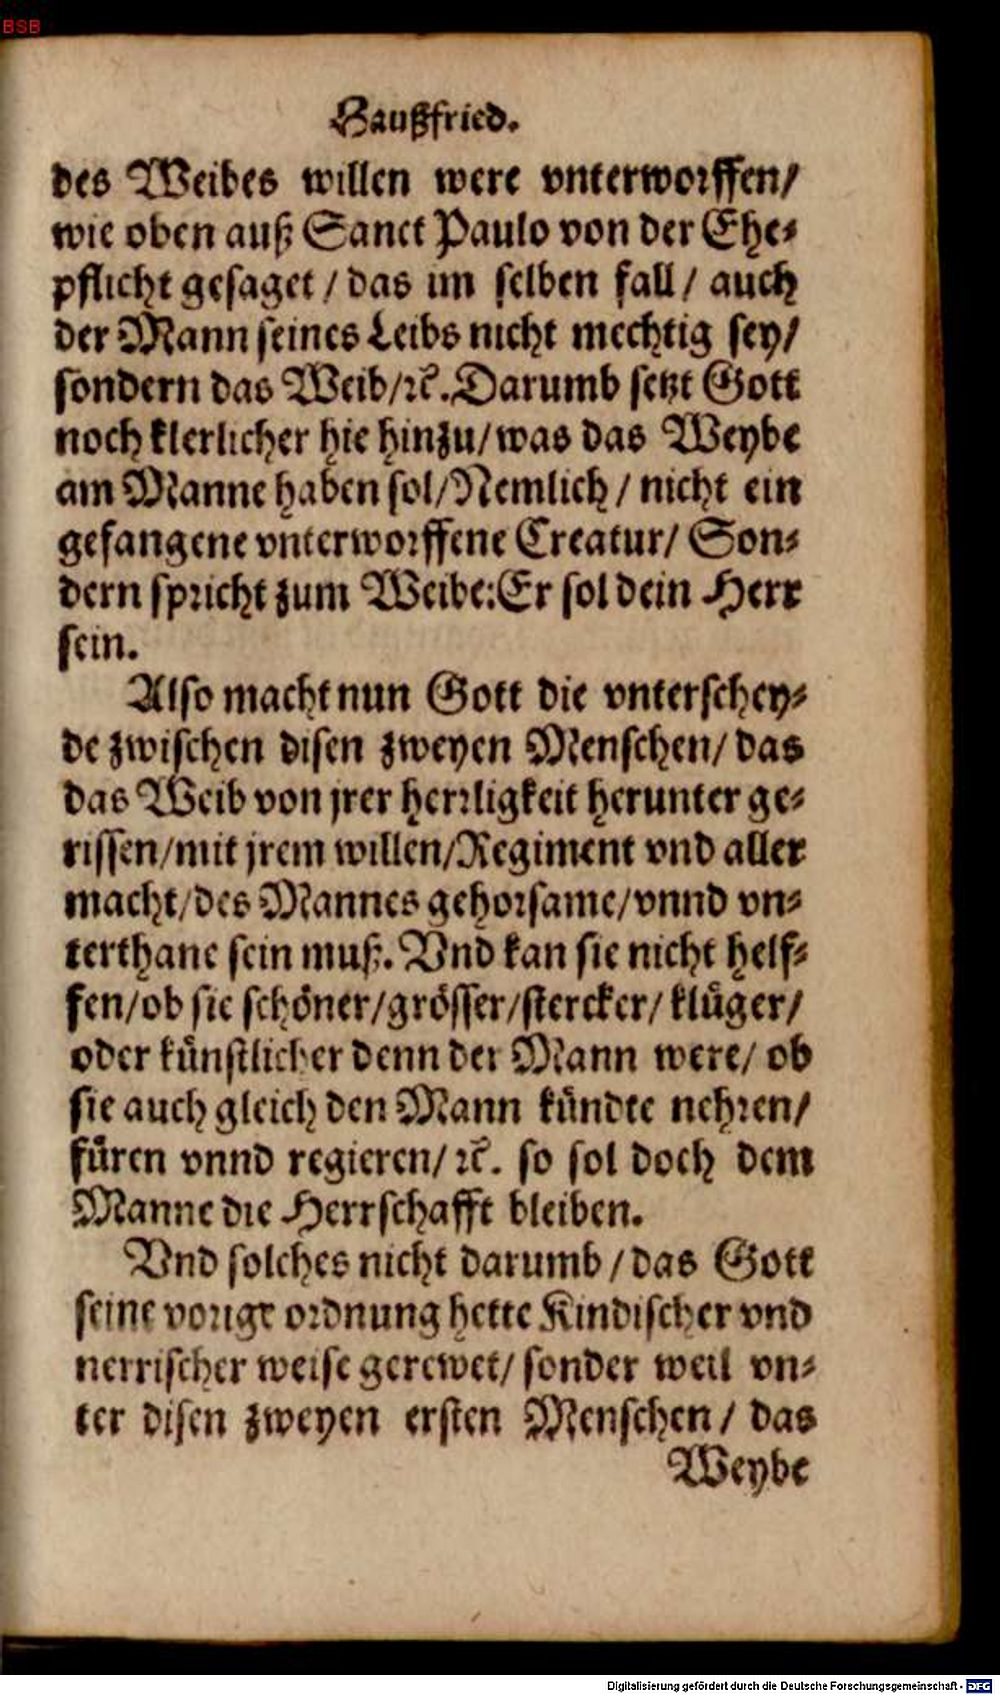 BSB
Haußfried.
des Weibes willen were vnterworffen/
wie oben auß Sanct Paulo von der Ehe-
pflicht gesaget / das im selben fall / auch
der Mann seines Leibs nicht mechtig sey/
sondern das Weib/ꝛc̃. Darumb setzt Gott
noch klerlicher hie hinzu/ was das Weybe
am Manne haben sol/ Nemlich / nicht ein
gefangene vnterworffene Creatur/ Son-
dern spricht zum Weibe: Er sol dein Herr
sein.
Also macht nun Gott die vnterschey-
de zwischen disen zweyen Menschen/ das
das Weib von jrer herrligkeit herunter ge-
rissen/mit jrem willen/Regiment vnd aller
macht/des Mannes gehorsame/vnnd vn-
terthane sein muß. Vnd kan sie nicht helf-
fen/ob sie schöner/grösser/stercker/ klüger/
oder künstlicher denn der Mann were/ ob
sie auch gleich den Mann kündte nehren/
füren vnnd regieren/ ꝛc̃. so sol doch dem
Manne die Herrschafft bleiben.
Vnd solches nicht darumb / das Gott
seine vorige ordnung hette Kindischer vnd
nerrischer weise gerewet/ sonder weil vn-
ter disen zweyen ersten Menschen / das
Weybe
Digitalisierung gefördert durch die Deutsche Forschungsgemeinschaft - DFG